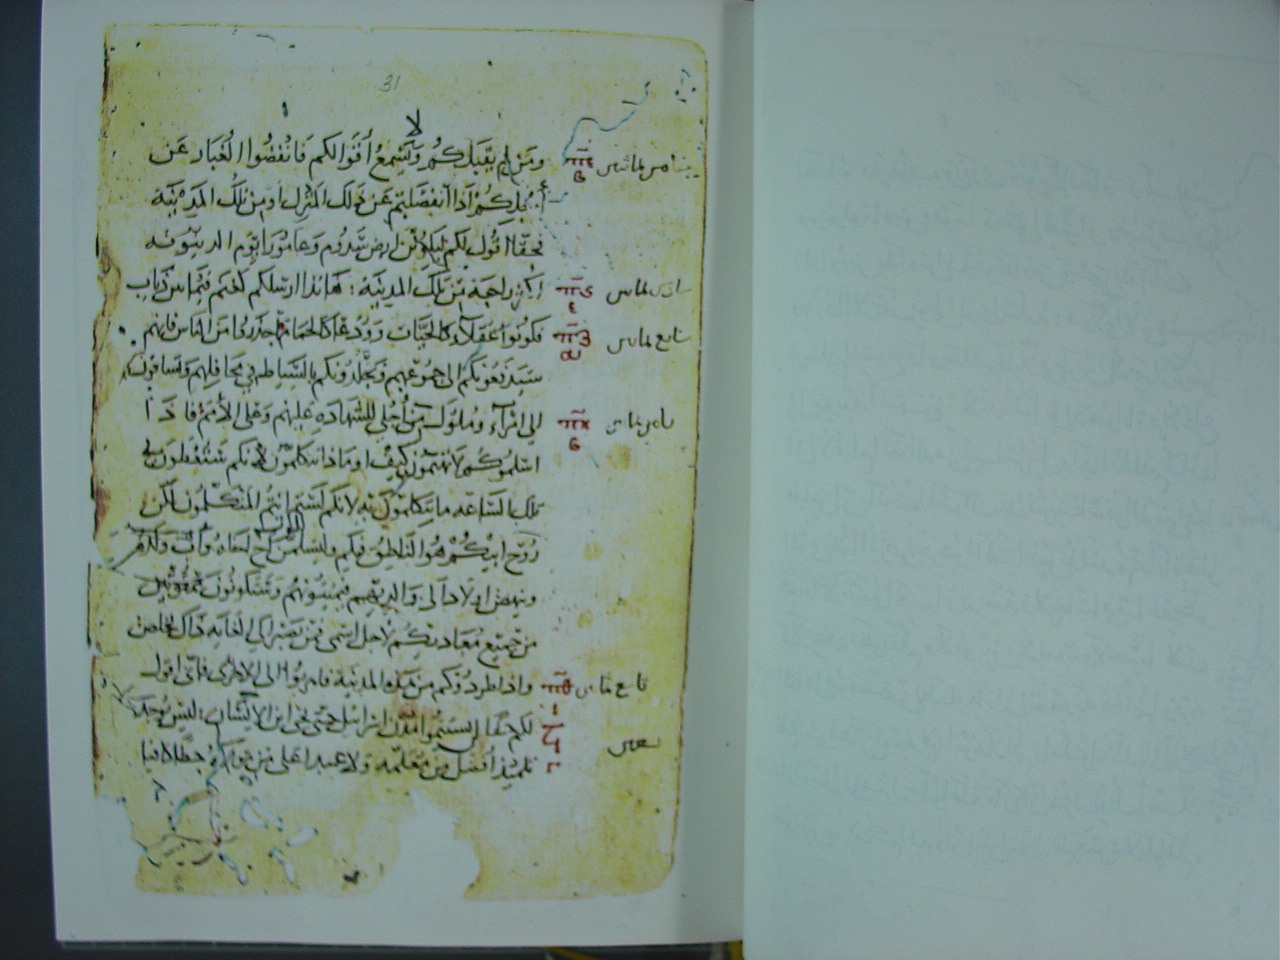 31
لا
ومن لم يقبلكم ويسمع أقوالكم فانفضوا الغبار عن
أرجلكم اذا انفصلتم عن ذلك المنزل أو من تلك المدينة
فحقا اقول لكم ليكونن لارض سدوم وعامورا يوم الدينونه
اكثر راحة من تلك المدينة : هانذا ارسلكم كغنم فيما بين ذياب
فكونوا عقلا كالحيات وودعا كالحمام احذروا من الناس فانهم
سيدفعونكم الى جموعهم ويجلدونكم بالسياط في محافلهم وتساقون
الى امرآء وملوك من أجلي للشهاده عليهم وعلى الأمم فاذا
اسلموكم لا تهتمون كيف او ماذا تتكلمون لانكم ستعطون في
تلك الساعه ما تتكلمون به لانكم لستم انتم المتكلمون لكن
روح ابيكم هو الناطق فيكم وليسلمن أخ اخاه وأب ولده
وينهض اولاد الى والديهم فيميتونهم وستكونون ممقوتين
من جميع معاديكم لاجل اسمى فمن يصبر الى الغايه ذاك يخلص
واذا طردوكم من هذه المدينة فاهربوا الى الاخرى فاني اقول
لكم حقا لستم مدن اسرايل حتى ابن الانسان : ليس يوجد
تلميذ أفضل من معلمه ولا عبد اعلى من مولاه
ثامن
سابع
ثامن
تاسع